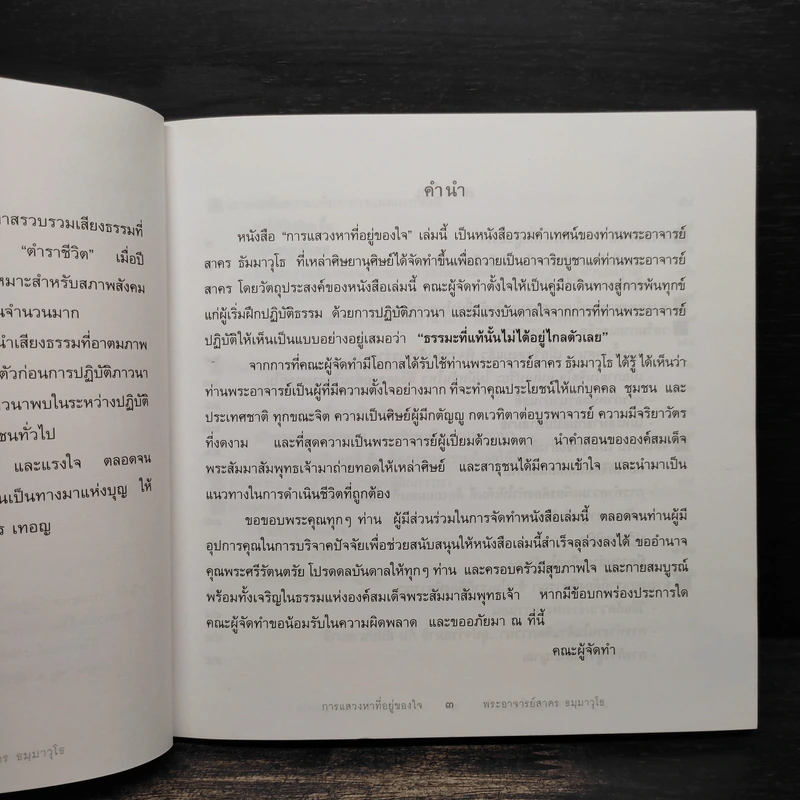 าสรวบรวมเสียงธรรมที่
“ตำราชีวิต” เมื่อปี
หมาะสำหรับสภาพสังคม
นจำนวนมาก
นำเสียงธรรมที่อาตมภาพ
ตัวก่อนการปฏิบัติภาวนา
าวนาพบในระหว่างปฏิบัติ
ชนทั่วไป
และแรงใจ ตลอดจน
นเป็นทางมาแห่งบุญ ให้
ร เทอญ
าร ธมฺมาวุโธ
คำนำ
หนังสือ “การแสวงหาที่อยู่ของใจ” เล่มนี้ เป็นหนังสือรวมคำเทศน์ของท่านพระอาจารย์
สาคร ธัมมาวุโธ ที่เหล่าศิษยานุศิษย์ได้จัดทำขึ้นเพื่อถวายเป็นอาจาริยบูชาแด่ท่านพระอาจารย์
สาคร โดยวัตถุประสงค์ของหนังสือเล่มนี้ คณะผู้จัดทำตั้งใจให้เป็นคู่มือเดินทางสู่การพ้นทุกข์
แก่ผู้เริ่มฝึกปฏิบัติธรรม ด้วยการปฏิบัติภาวนา และมีแรงบันดาลใจจากการที่ท่านพระอาจารย์
ปฏิบัติให้เห็นเป็นแบบอย่างอยู่เสมอว่า “ธรรมะที่แท้นั้นไม่ได้อยู่ไกลตัวเลย”
จากการที่คณะผู้จัดทำมีโอกาสได้รับใช้ท่านพระอาจารย์สาคร ธัมมาวุโธ ได้รู้ ได้เห็นว่า
ท่านพระอาจารย์เป็นผู้ที่มีความตั้งใจอย่างมาก ที่จะทำคุณประโยชน์ให้แก่บุคคล ชุมชน และ
ประเทศชาติ ทุกขณะจิต ความเป็นศิษย์ผู้มีกตัญญู กตเวทิตาต่อบูรพาจารย์ ความมีจริยาวัตร
ที่งดงาม และที่สุดความเป็นพระอาจารย์ผู้เปี่ยมด้วยเมตตา นำคำสอนขององค์สมเด็จ
พระสัมมาสัมพุทธเจ้ามาถ่ายทอดให้เหล่าศิษย์ และสาธุชนได้มีความเข้าใจ และนำมาเป็น
แนวทางในการดำเนินชีวิตที่ถูกต้อง
ขอขอบพระคุณทุกๆ ท่าน ผู้มีส่วนร่วมในการจัดทำหนังสือเล่มนี้ ตลอดจนท่านผู้มี
อุปการคุณในการบริจาคปัจจัยเพื่อช่วยสนับสนุนให้หนังสือเล่มนี้สำเร็จลุล่วงลงได้ ขออำนาจ
คุณพระศรีรัตนตรัย โปรดดลบันดาลให้ทุกๆ ท่าน และครอบครัวมีสุขภาพใจ และกายสมบูรณ์
พร้อมทั้งเจริญในธรรมแห่งองค์สมเด็จพระสัมมาสัมพุทธเจ้า หากมีข้อบกพร่องประการใด
คณะผู้จัดทำขอน้อมรับในความผิดพลาด และขออภัยมา ณ ที่นี้
คณะผู้จัดทำ
การแสวงหาที่อยู่ของใจ ๓ พระอาจารย์สาคร ธมฺมาวุโธ